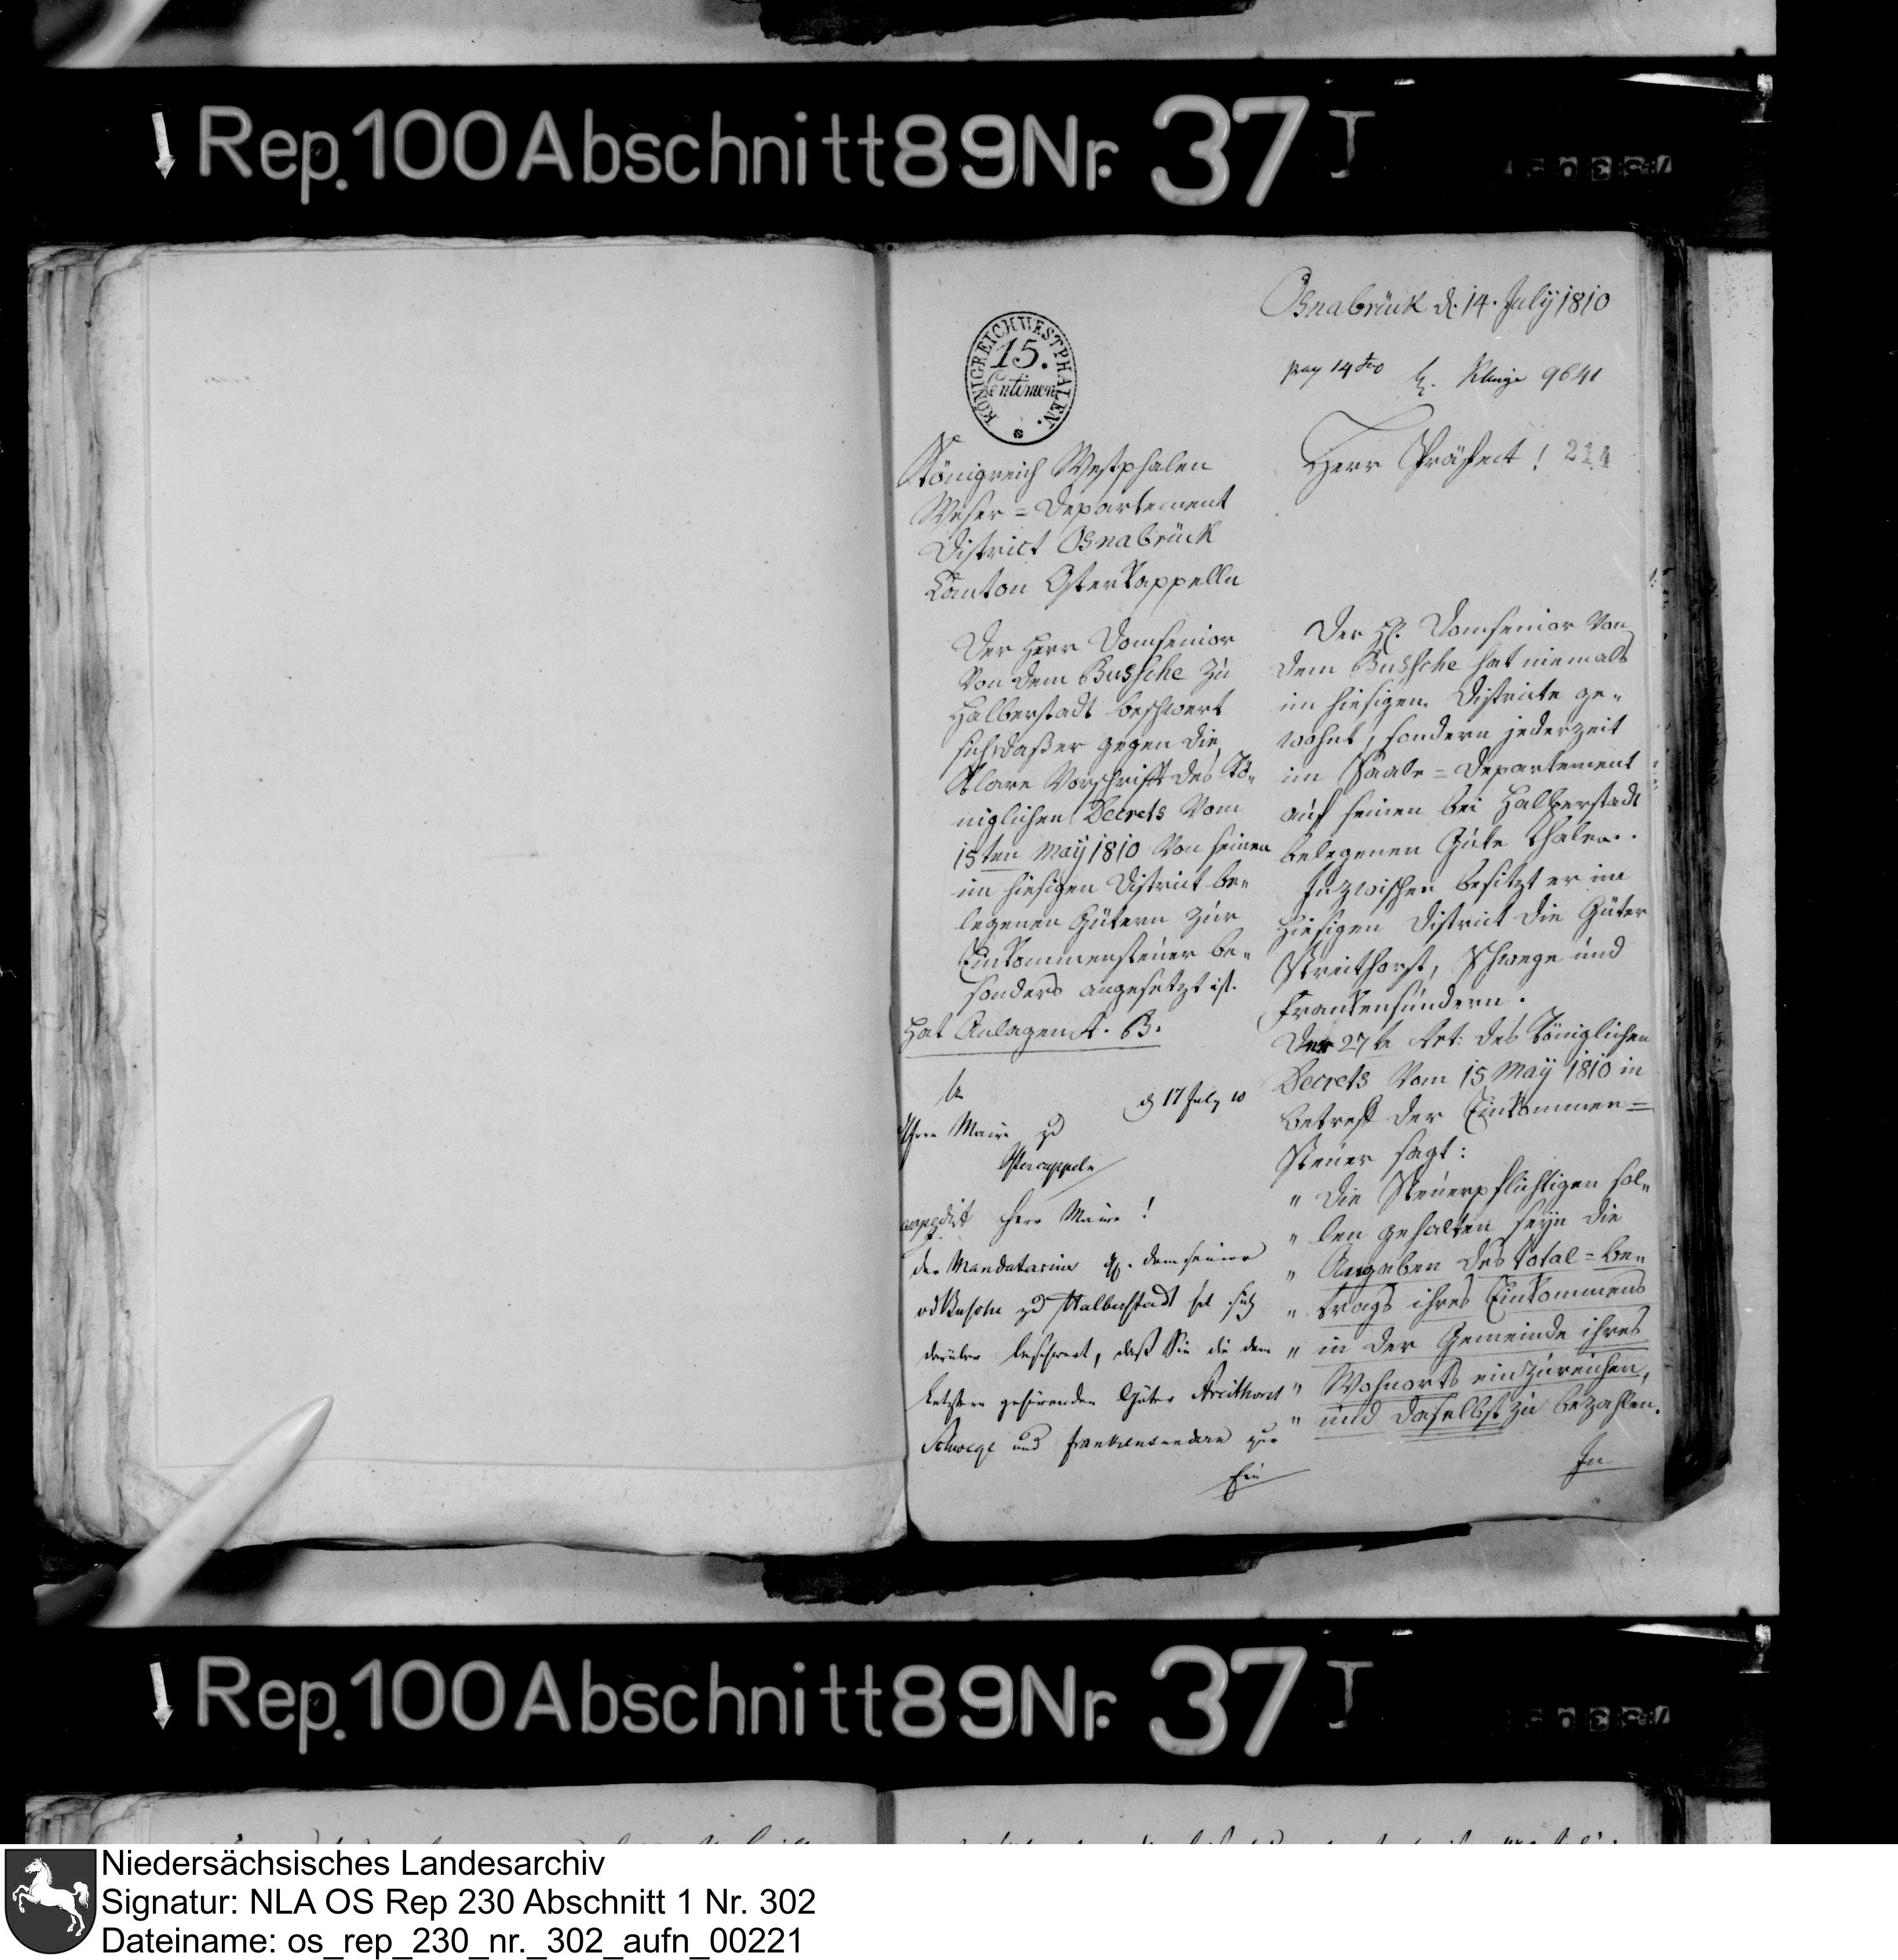 Rep. 100 Abschnitt 89 Nr. 37 I
Osnabrück d. 14. Julÿ 1810
9641
KÖNIGREICH WESTPHALEN.
15.
Centimen
Herr Präfect!
Königreich Westphalen
Weser=Departement
District Osnabrück
Canton Osterkappelln
Der Herr Domsenior
von dem Bussche zu
Halberstadt beschwert
sich, daß er gegen die
klare Vorschrift des Kö„
niglichen Decrets vom
15ten Maÿ 1810 von seinen
im hiesigen District be„
legenen Gütern zur
Einkommensteuer be„
sonders angesetzt ist.
Hat Anlagen A. B.
An
d 17 July 10
Herrn Maire zu
Ostercappeln
Herr Maire!
der Mandatarius H. Domsenior
vd Busche zu Halberstadt hat sich
darüber beschwert, daß Sie die dem
Letztern gehörenden Güter Streithorst
Schwege und Frankensundern zur
Ein
Der H. Domsenior von
dem Bussche hat niemals
im hiesigen Districte ge„
wohnt, sondern jederzeit
im Saale=Departement
auf seinen bei Halberstadt
belegenen Gute Thale.
Inzwischen besitzt er im
hiesigen District die Güter
Streithorst, Schwege und
Frankensundern.
Der 27te Art: des Königlichen
Decrets vom 15 Maÿ 1810 in
betreff der Einkommen=
Steuer sagt:
„ Die Steuerpflichtigen sol„
„ len gehalten seÿn die
„ Angaben des Total=Be„
„ trags ihres Einkommens
„ in der Gemeinde ihres
„ Wohnorts einzureichen,
„ und daselbst zu bezahlen.
In
Rep. 100 Abschnitt 89 Nr. 37 I
Niedersächsisches Landesarchiv
Signatur: NLA OS Rep 230 Abschnitt 1 Nr. 302
Dateiname: os_rep_230_nr._302_aufn_00221